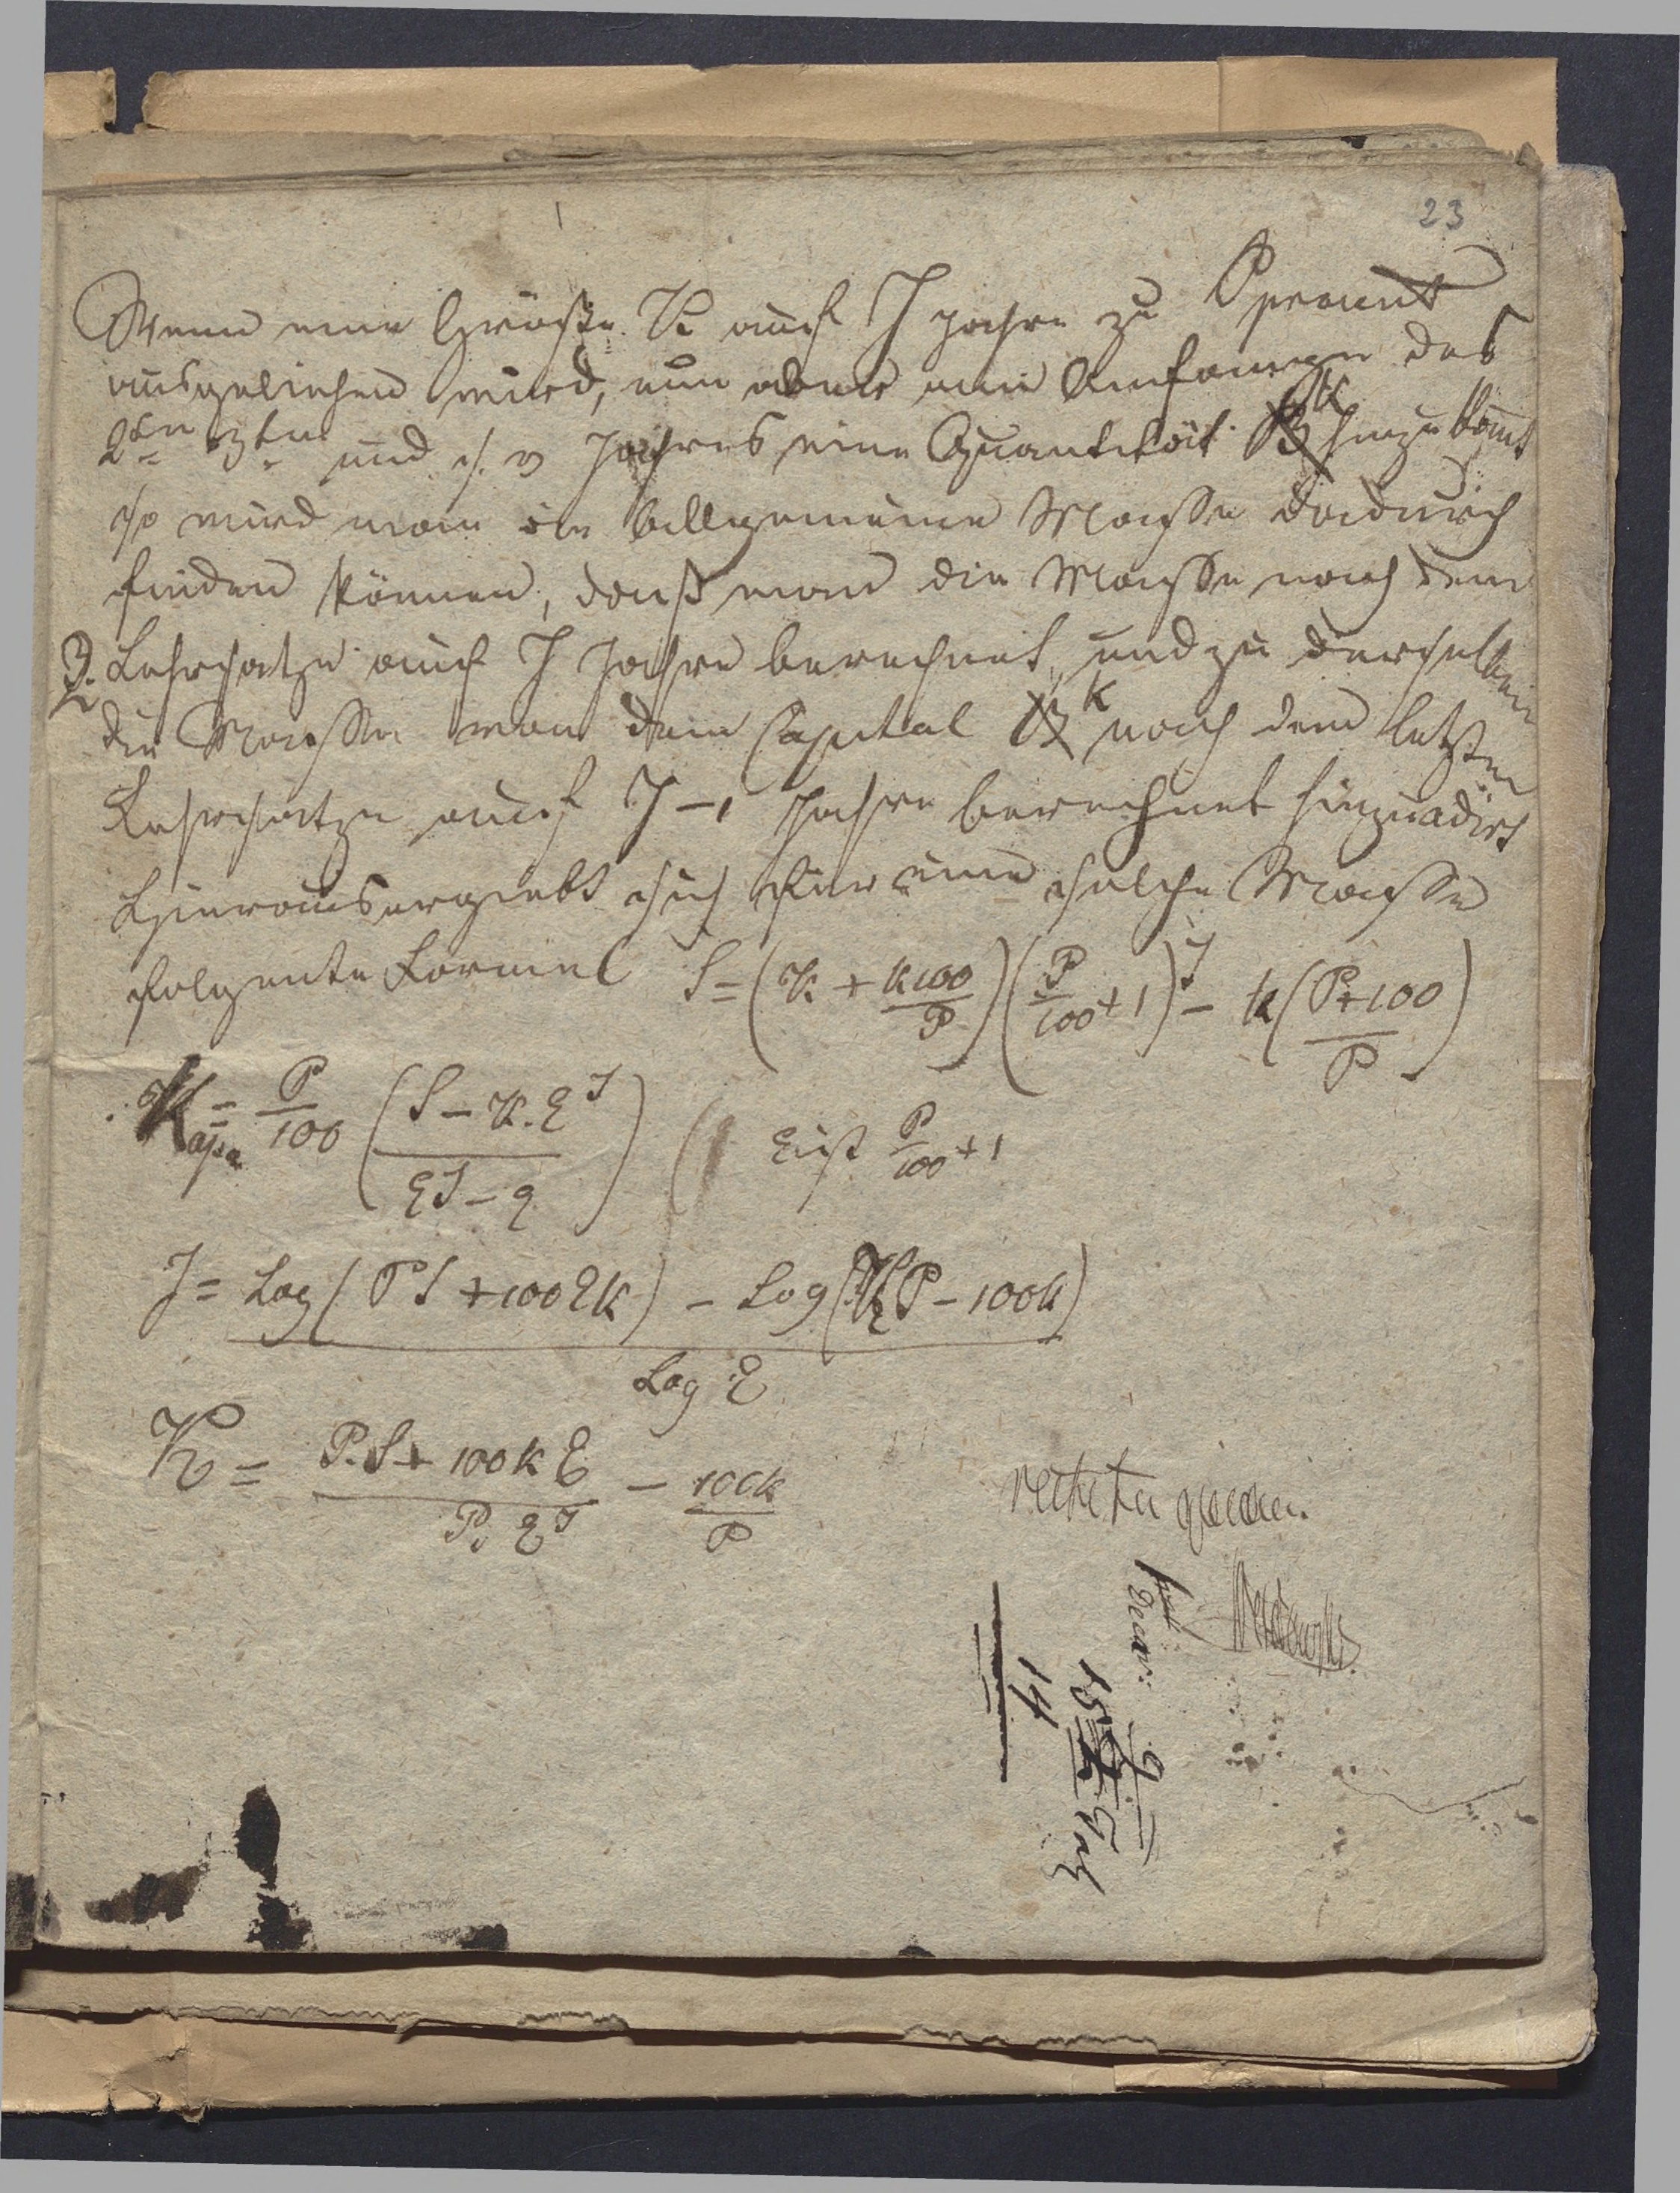 23
Wenn eine Größe K auf J Jahre zu P procent
ausgeliehen wird, nun aber am Anfange des
2ten 3ten und s. w Jahres eine Quantität k hinzukömt
so wird man die allgemeine Masse dadurch
finden können, daß man die Masse nach dem
3. Lehrsatze auf J Jahre berechnet, und zu derselben
die Masse von dem Capital k nach dem letzten
Lehrsatze auf J-1 Jahre berechnet hinzuadirt
Hieraus ergiebt sich für eine solche Masse
folgente Formel S = (K + k100/P)(P/100 + 1)^J - k(P+100/P)
k = P/100 (S - K.Q^J / Q^J - Q) Q ist P/100 + 1
J = Log(PS + 100Qk) - Log(KP - 100k) / Log Q
K = P.S + 100kQ / P. Q^J - 100k/P
14